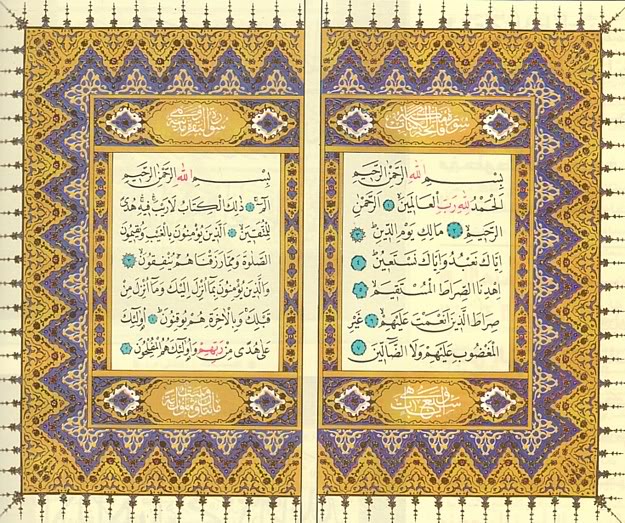 سُورَةُ فَاتِحَةِ الْكِتَابِ
بِسْمِ اللهِ الرَّحْمٰنِ الرَّحِيمِ
اَلْحَمْدُ لِلّٰهِ رَبِّ الْعَالَمِينَ اَلرَّحْمٰنِ
الرَّحِيمِ مَالِكِ يَوْمِ الدِّينِ
اِيَّاكَ نَعْبُدُ وَاِيَّاكَ نَسْتَعِينُ
اِهْدِنَا الصِّرَاطَ الْمُسْتَقِيمَ
صِرَاطَ الَّذِينَ اَنْعَمْتَ عَلَيْهِمْ غَيْرِ
الْمَغْضُوبِ عَلَيْهِمْ وَلَا الضَّالِّينَ
سُورَةُ الْبَقَرَةِ مَدَنِيَّةٌ
بِسْمِ اللهِ الرَّحْمٰنِ الرَّحِيمِ
الٓمٓ ذٰلِكَ الْكِتَابُ لَا رَيْبَ فِيهِ هُدًى
لِلْمُتَّقِينَ اَلَّذِينَ يُؤْمِنُونَ بِالْغَيْبِ وَيُقِيمُونَ
الصَّلٰوةَ وَمِمَّا رَزَقْنَاهُمْ يُنْفِقُونَ
وَالَّذِينَ يُؤْمِنُونَ بِمَا اُنْزِلَ اِلَيْكَ وَمَا اُنْزِلَ مِنْ
قَبْلِكَ وَبِالْاٰخِرَةِ هُمْ يُوقِنُونَ اُولٰئِكَ
عَلٰى هُدًى مِنْ رَبِّهِمْ وَاُولٰئِكَ هُمُ الْمُفْلِحُونَ